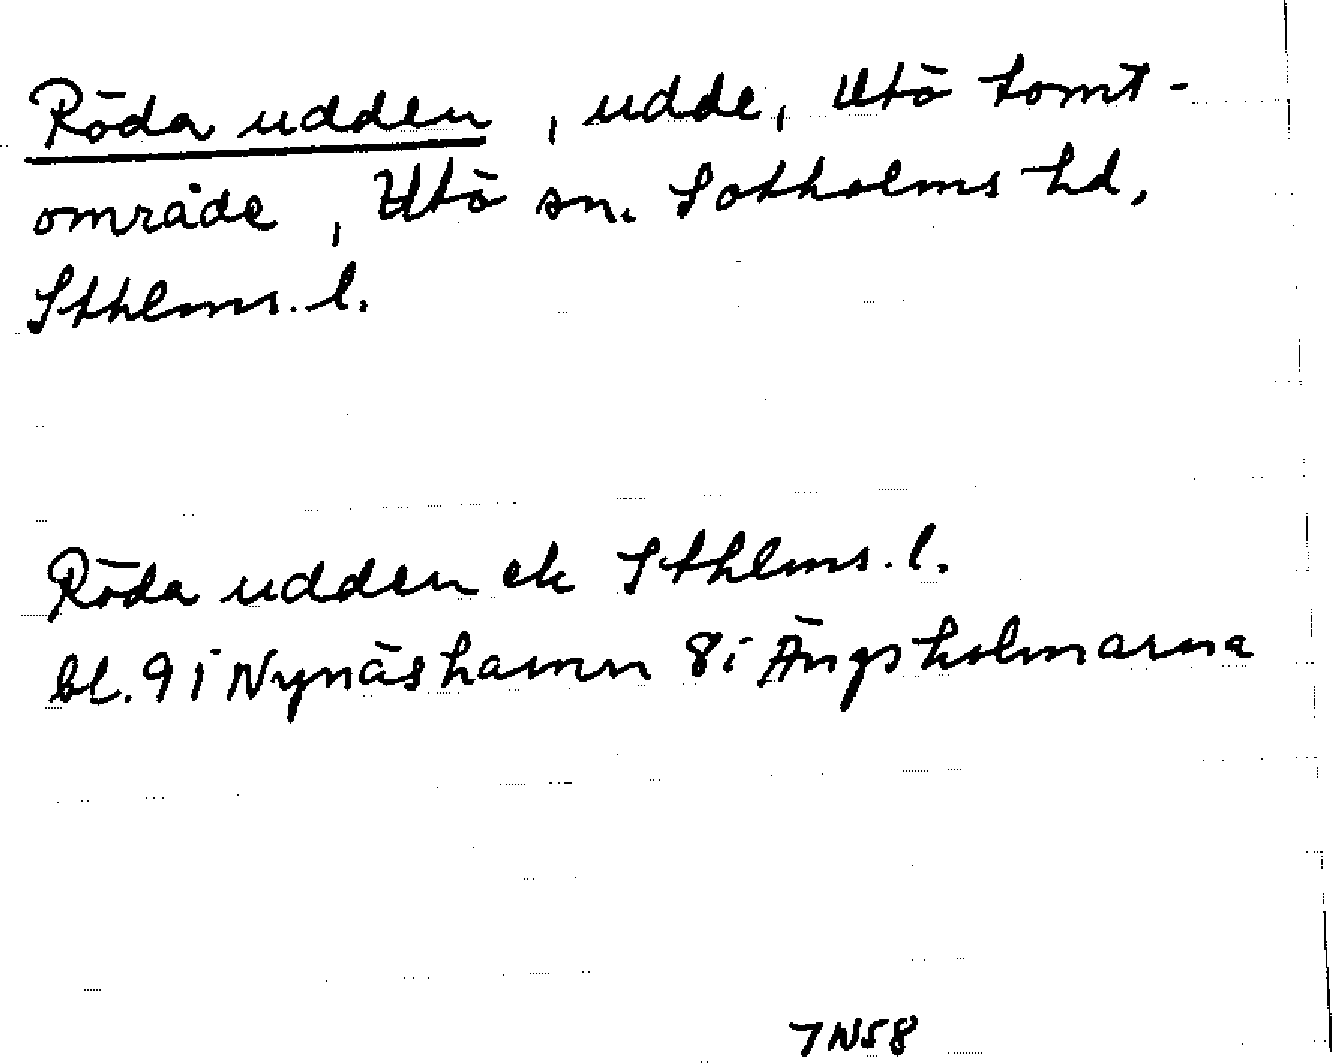 Röda udden, udde, Utö tomt-
område, Utö sn. Sotholms hd,
Sthlms. l.
Röda udden ek Sthlms. l.
bl. 9 i Nynäshamn 8i Ängsholmarna
7N58